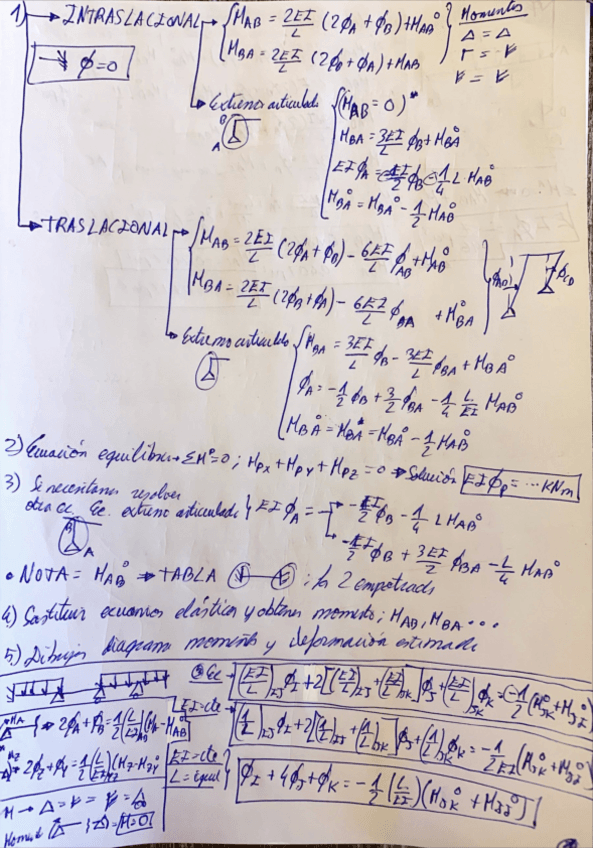 1) → INTRASLACIONAL → { M_AB = 2EI/L (2ϕ_A + ϕ_B) + M_AB°
M_BA = 2EI/L (2ϕ_B + ϕ_A) + M_AB
Momentos
ϕ = 0
→ Extremo articulado { (M_AB = 0)*
B
A
M_BA = 3EI/L ϕ_B + M_BA°
EIϕ_A = -EI/2 ϕ_B - 1/4 L · M_AB°
M_BA° = M_BA° - 1/2 M_AB°
→ TRASLACIONAL → { M_AB = 2EI/L (2ϕ_A + ϕ_B) - 6EI/L ϕ_AB + M_AB°
M_BA = 2EI/L (2ϕ_B + ϕ_A) - 6EI/L ϕ_BA + M_BA°
→ Extremo articulado { M_BA = 3EI/L ϕ_B - 3EI/L ϕ_BA + M_BA°
ϕ_A = -1/2 ϕ_B + 3/2 ϕ_BA - 1/4 L/EI M_AB°
M_BA° = M_BA* = M_BA° - 1/2 M_AB°
2) Ecuación equilibrio → ΣM°=0 ; M_PX + M_PY + M_PZ = 0 → Solución EIϕ_P = ... KNm
3) Si necesitamos resolver
otra ec. Ec. extremo articulado } EIϕ_A = → -EI/2 ϕ_B - 1/4 L M_AB°
→ -EI/2 ϕ_B + 3EI/2 ϕ_BA - L/4 M_AB°
B
A
• NOTA = M_AB° → TABLA ; los 2 empotrados
4) Sustituir ecuaciones elástica y obtener momento ; M_AB, M_BA ...
5) Dibujar diagrama momentos y deformación estimada
Ec → [(EI/L)_IJ ϕ_I + 2[(EI/L)_IJ + (EI/L)_JK] ϕ_J + (EI/L)_JK ϕ_K = (-) 1/2 (M_JK° + M_JI°)
EI=cte → (1/L)_IJ ϕ_I + 2[(1/L)_IJ + (1/L)_JK] ϕ_J + (1/L)_JK ϕ_K = -1/2EI (M_JK° + M_JI°)
→ 2ϕ_A + ϕ_B = 1/2 (L/EI)_AB (M_A - M_AB°)
EI=cte
L=igual } ϕ_I + 4ϕ_J + ϕ_K = -1/2 (L/EI) (M_JK° + M_JI°)
M=0